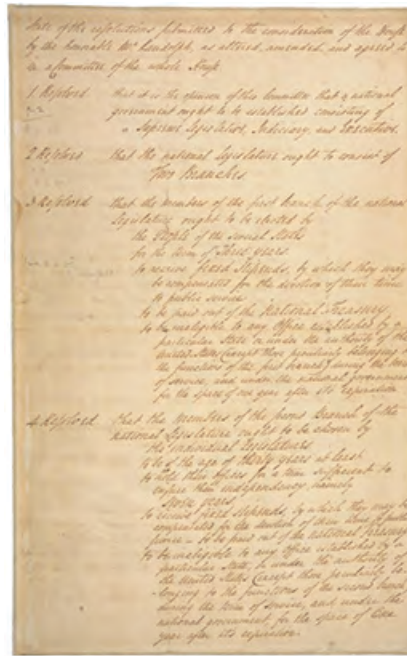 State of the resolutions submitted to the consideration of the House
by the honorable Mr. Randolph, as altered, amended, and agreed to
in a Committee of the whole House.
1 Resolved that it is the opinion of this Committee that a national
government ought to be established consisting of
a Supreme Legislative, Judiciary, and Executive.
2 Resolved that the national Legislature ought to consist of
Two Branches.
3 Resolved that the members of the first branch of the national
Legislature ought to be elected by
the People of the several States
for the term of Three years.
to receive fixed stipends, by which they may
be compensated for the devotion of their time
to public service
to be paid out of the National Treasury.
to be ineligible to any Office established by a
particular State or under the authority of the
United States (except those peculiarly belonging to
the functions of the first branch) during the term
of service, and under the national government
for the space of one year after its expiration.
4 Resolved that the Members of the second Branch of the
national Legislature ought to be chosen by
the individual Legislatures.
to be of the age of thirty years at least.
to hold their offices for a term sufficient to
ensure their independency, namely
seven years.
to receive fixed stipends, by which they may be
compensated for the devotion of their time to public
service — to be paid out of the National Treasury
to be ineligible to any Office established by a
particular State, or under the authority of
the United States (except those peculiarly be-
longing to the functions of the second branch)
during the term of service, and under the
national government, for the space of One
year after its expiration.